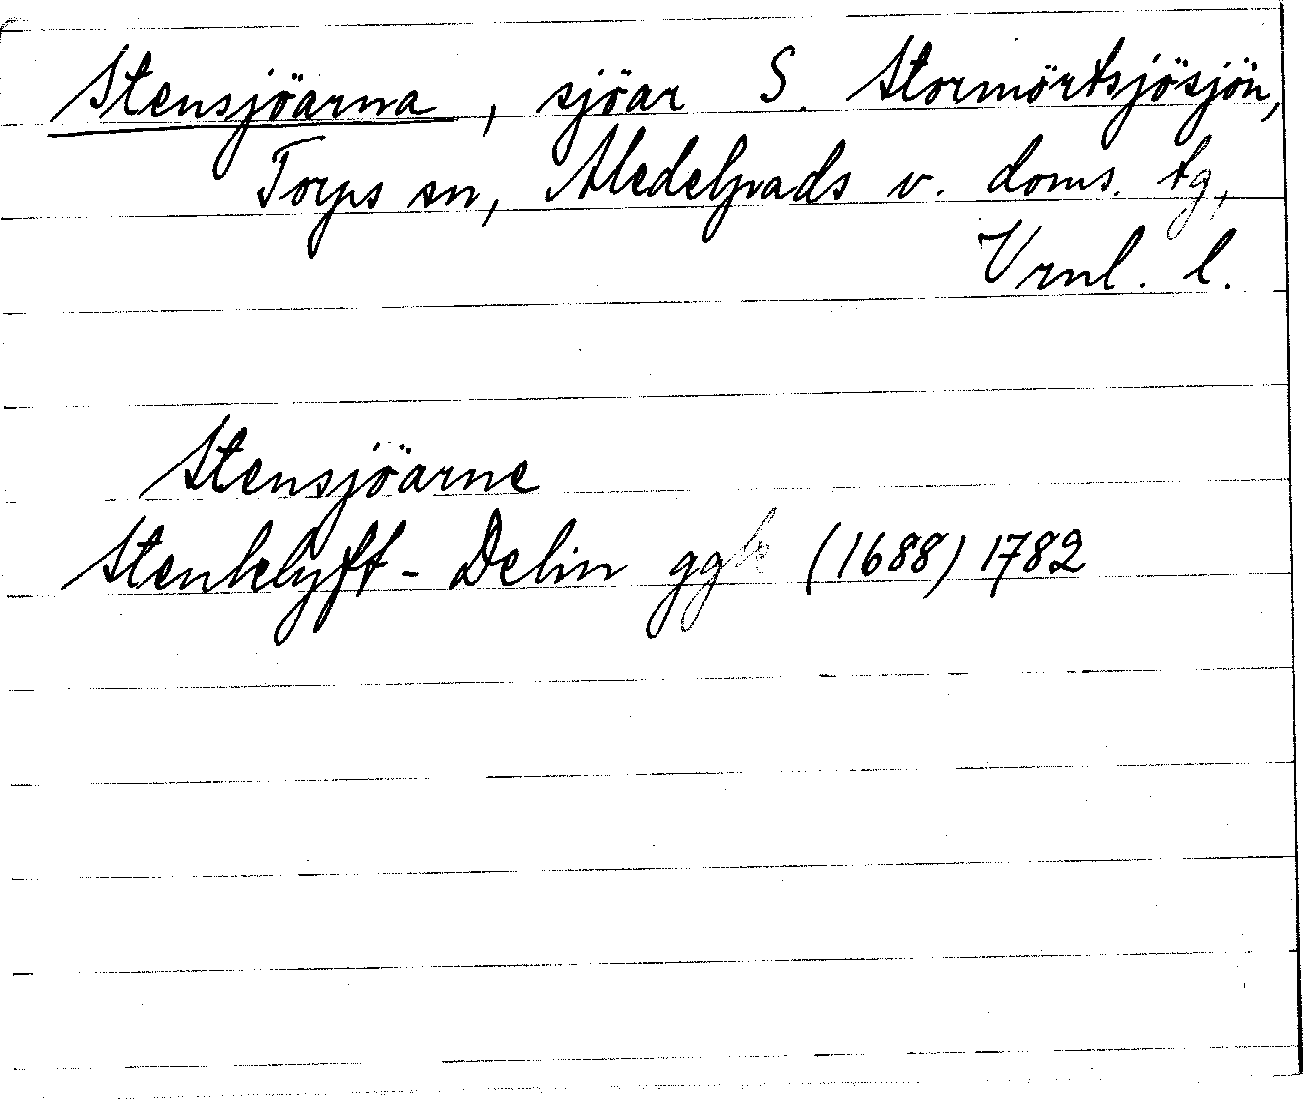 Stensjöarna, sjöar S. Stormörtsjösjön,
Torps sn, Medelpads v. doms. tg,
Vrnl. l.
Stensjöarne
Stenklyft - Delin ggk (1688) 1782